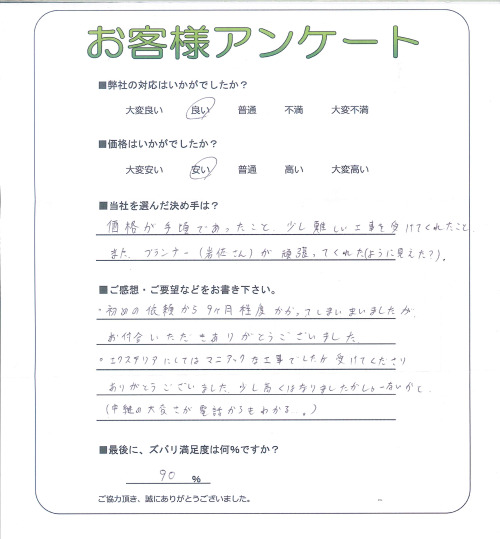 お客様アンケート
■弊社の対応はいかがでしたか？
大変良い 良い 普通 不満 大変不満
■価格はいかがでしたか？
大変安い 安い 普通 高い 大変高い
■当社を選んだ決め手は？
価格が手頃であったこと、少し難しい工事を受けてくれたこと
また、プランナー(岩佐さん)が頑張ってくれた(ように見えた?)。
■ご感想・ご要望などをお書き下さい。
・初めの依頼から9ヶ月程度かかってしまいましたが
お付合いただきありがとうございました
・エクステリアにしてはマニアックな工事でしたが受けてくださり
ありがとうございました、少し高くはなりましたがしょーないかと
(中継の大変さが電話からもわかる。)
■最後に、ズバリ満足度は何％ですか？
90 ％
ご協力頂き、誠にありがとうございました。